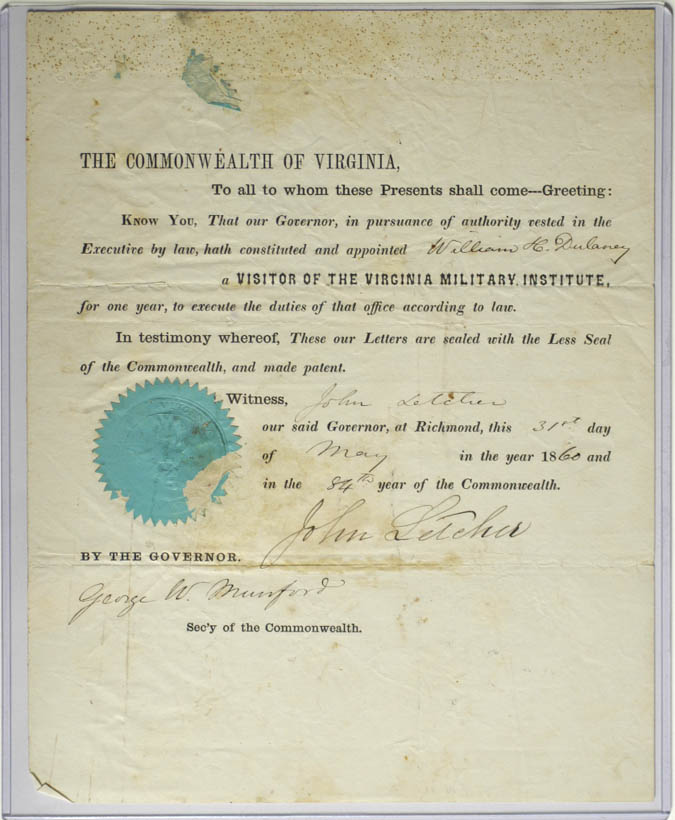 THE COMMONWEALTH OF VIRGINIA,
To all to whom these Presents shall come---Greeting:
KNOW YOU, That our Governor, in pursuance of authority vested in the
Executive by law, hath constituted and appointed William H. Dulaney
a VISITOR OF THE VIRGINIA MILITARY INSTITUTE,
for one year, to execute the duties of that office according to law.
In testimony whereof, These our Letters are sealed with the Less Seal
of the Commonwealth, and made patent.
Witness, John Letcher
our said Governor, at Richmond, this 31st day
of May in the year 1860 and
in the 84th year of the Commonwealth.
John Letcher
BY THE GOVERNOR.
George W. Munford
Sec'y of the Commonwealth.